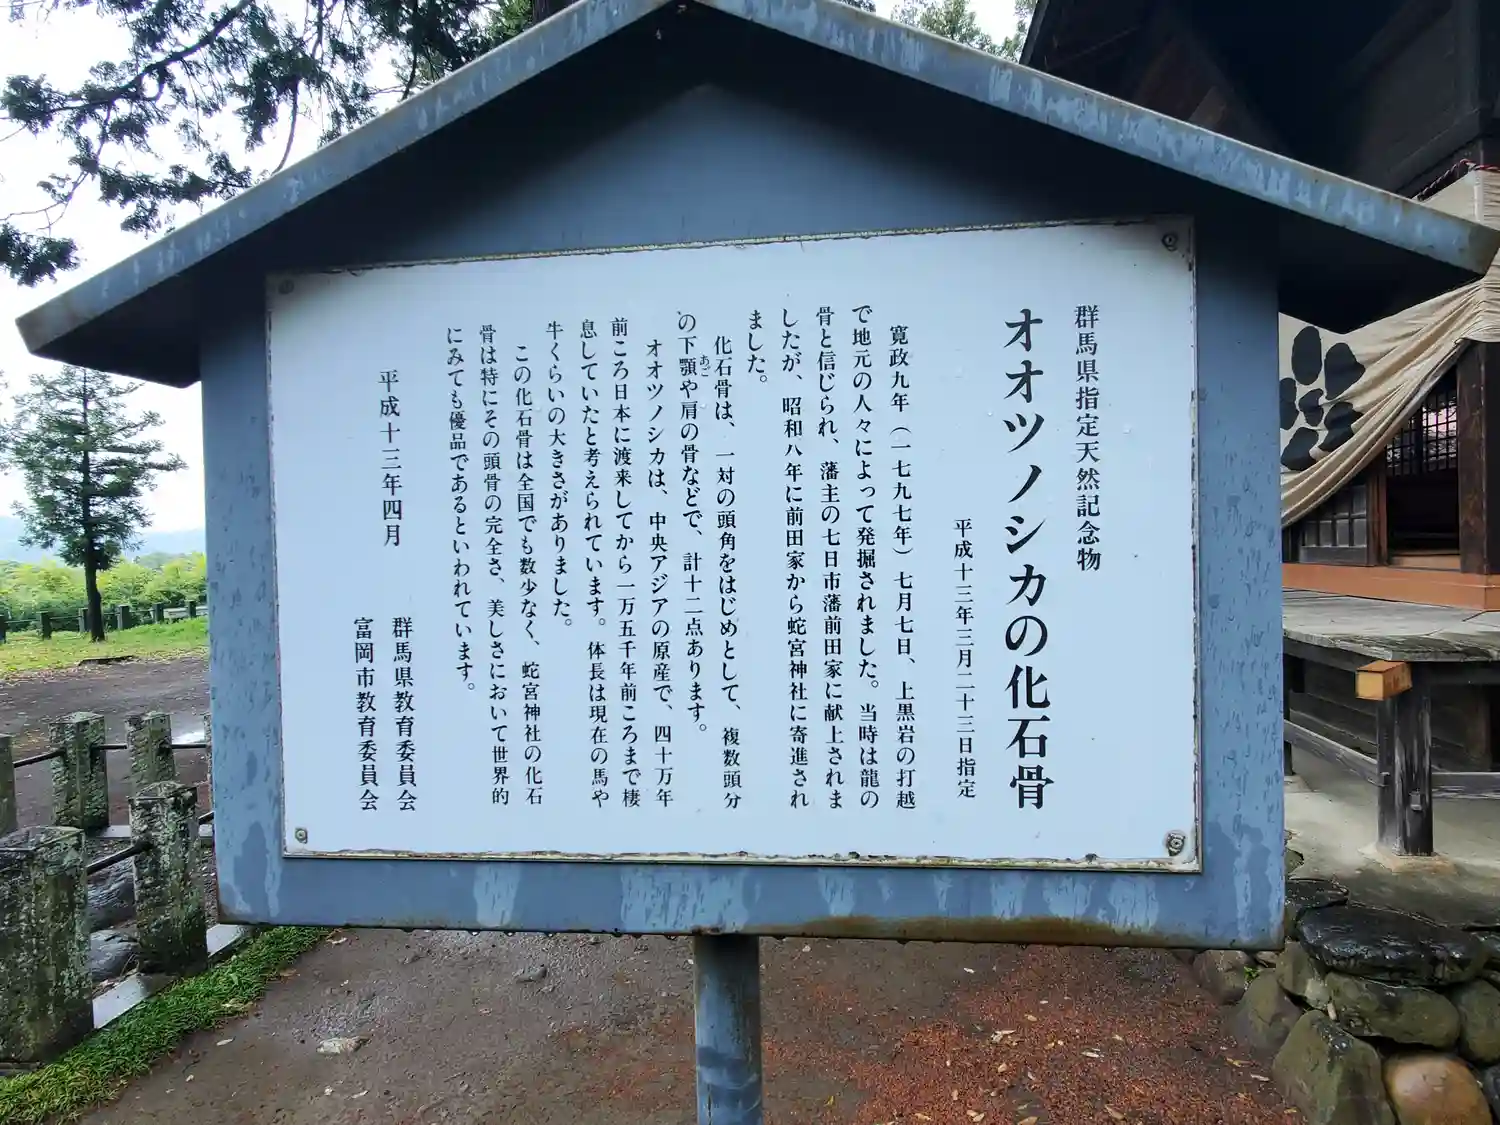 群馬県指定天然記念物
オオツノシカの化石骨
平成十三年三月二十三日指定
寛政九年（一七九七年）七月七日、上黒岩の打越
で地元の人々によって発掘されました。当時は龍の
骨と信じられ、藩主の七日市藩前田家に献上されま
したが、昭和八年に前田家から蛇宮神社に寄進され
ました。
化石骨は、一対の頭角をはじめとして、複数頭分
の下顎や肩の骨などで、計十二点あります。
あご
オオツノシカは、中央アジアの原産で、四十万年
前ころ日本に渡来してから一万五千年前ころまで棲
息していたと考えられています。体長は現在の馬や
牛くらいの大きさがありました。
この化石骨は全国でも数少なく、蛇宮神社の化石
骨は特にその頭骨の完全さ、美しさにおいて世界的
にみても優品であるといわれています。
平成十三年四月
群馬県教育委員会
富岡市教育委員会